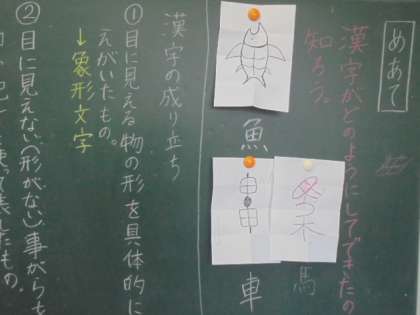 めあて
漢字がどのようにしてできたの
知ろう。
魚
馬
車
漢字の成り立ち
①目に見える物の形を具体的に
えがいたもの。
↓象形文字
②目に見えない(形がない)事がらを